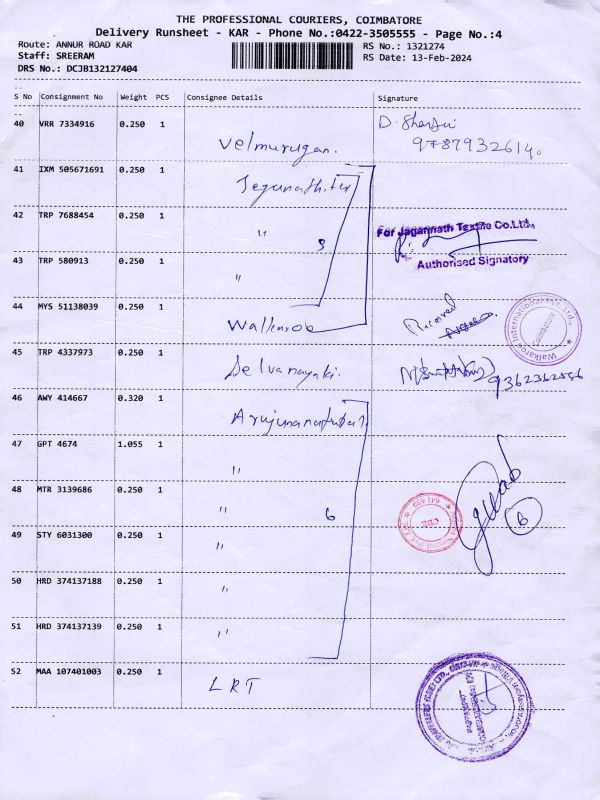 THE PROFESSIONAL COURIERS, COIMBATORE
Delivery Runsheet - KAR - Phone No.:0422-3505555 - Page No.:4
Route: ANNUR ROAD KAR
RS No.: 1321274
Staff: SREERAM
RS Date: 13-Feb-2024
DRS No.: DCJB132127404
S No Consignment No Weight PCS Consignee Details Signature
40 VRR 7334916 0.250 1 Velmurugan.
978793261
41 IXM 505671691 0.250 1
42 TRP 7688454 0.250 1 "
For Jagannath Textile Co.Ltd.,
43 TRP 580913 0.250 1 "
Authorised Signatory
44 MYS 51138039 0.250 1 Walkaroo
Received
Walkaroo International Pvt Ltd
Coimbatore
45 TRP 4337973 0.250 1 Selvanayaki.
9362362556
46 AWY 414667 0.320 1
47 GPT 4674 1.055 1 "
48 MTR 3139686 0.250 1 " 6
641 659
6
49 STY 6031300 0.250 1 "
50 HRD 374137188 0.250 1 "
51 HRD 374137139 0.250 1 "
52 MAA 107401003 0.250 1 LRT